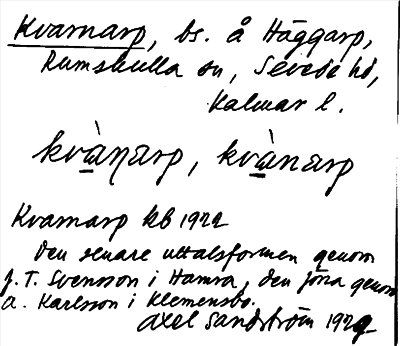 Kvarnarp, bs. å Häggarp,
Rumskulla sn, Sevede hd,
Kalmar l.
kvàṇarp, kvànarp
Kvarnarp kb 1922
Den senare uttalsformen genom
J. T. Svensson i Hamra, den förra genom
A. Karlsson i Klemensbo.
Axel Sandström 1929